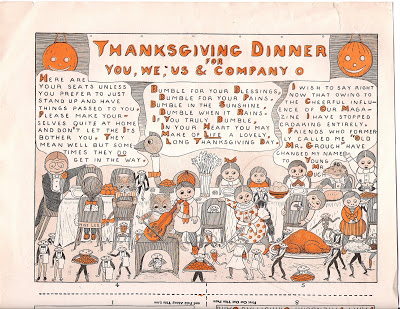 THANKSGIVING DINNER
FOR
YOU, WE, US & COMPANY O
HERE ARE
YOUR SEATS UNLESS
YOU PREFER TO JUST
STAND UP AND HAVE
THINGS PASSED TO YOU.
PLEASE MAKE YOUR-
SELVES QUITE AT HOME
AND DON'T LET THE ITS
BOTHER YOU. THEY
MEAN WELL BUT SOME
TIMES THEY DO
GET IN THE WAY.
BUMBLE FOR YOUR BLESSINGS,
BUMBLE FOR YOUR PAINS.
BUMBLE IN THE SUNSHINE,
BUMBLE WHEN IT RAINS.
YOU TRULY BUMBLE,
IN YOUR HEART YOU MAY
MAKE OF LIFE A LOVELY,
LONG THANKSGIVING DAY.
I WISH TO SAY RIGHT
NOW THAT OWING TO
THE CHEERFUL INFLU-
ENCE OF OUR MAGA-
ZINE I HAVE STOPPED
CROAKING ENTIRELY.
FRIENDS WHO FORMER
LY CALLED ME "OLD
MR. GROUCH" HAVE
CHANGED MY NAME
TO YOUNG
MR.
4
5
and Fold Along This Line
First Cut Out This Page